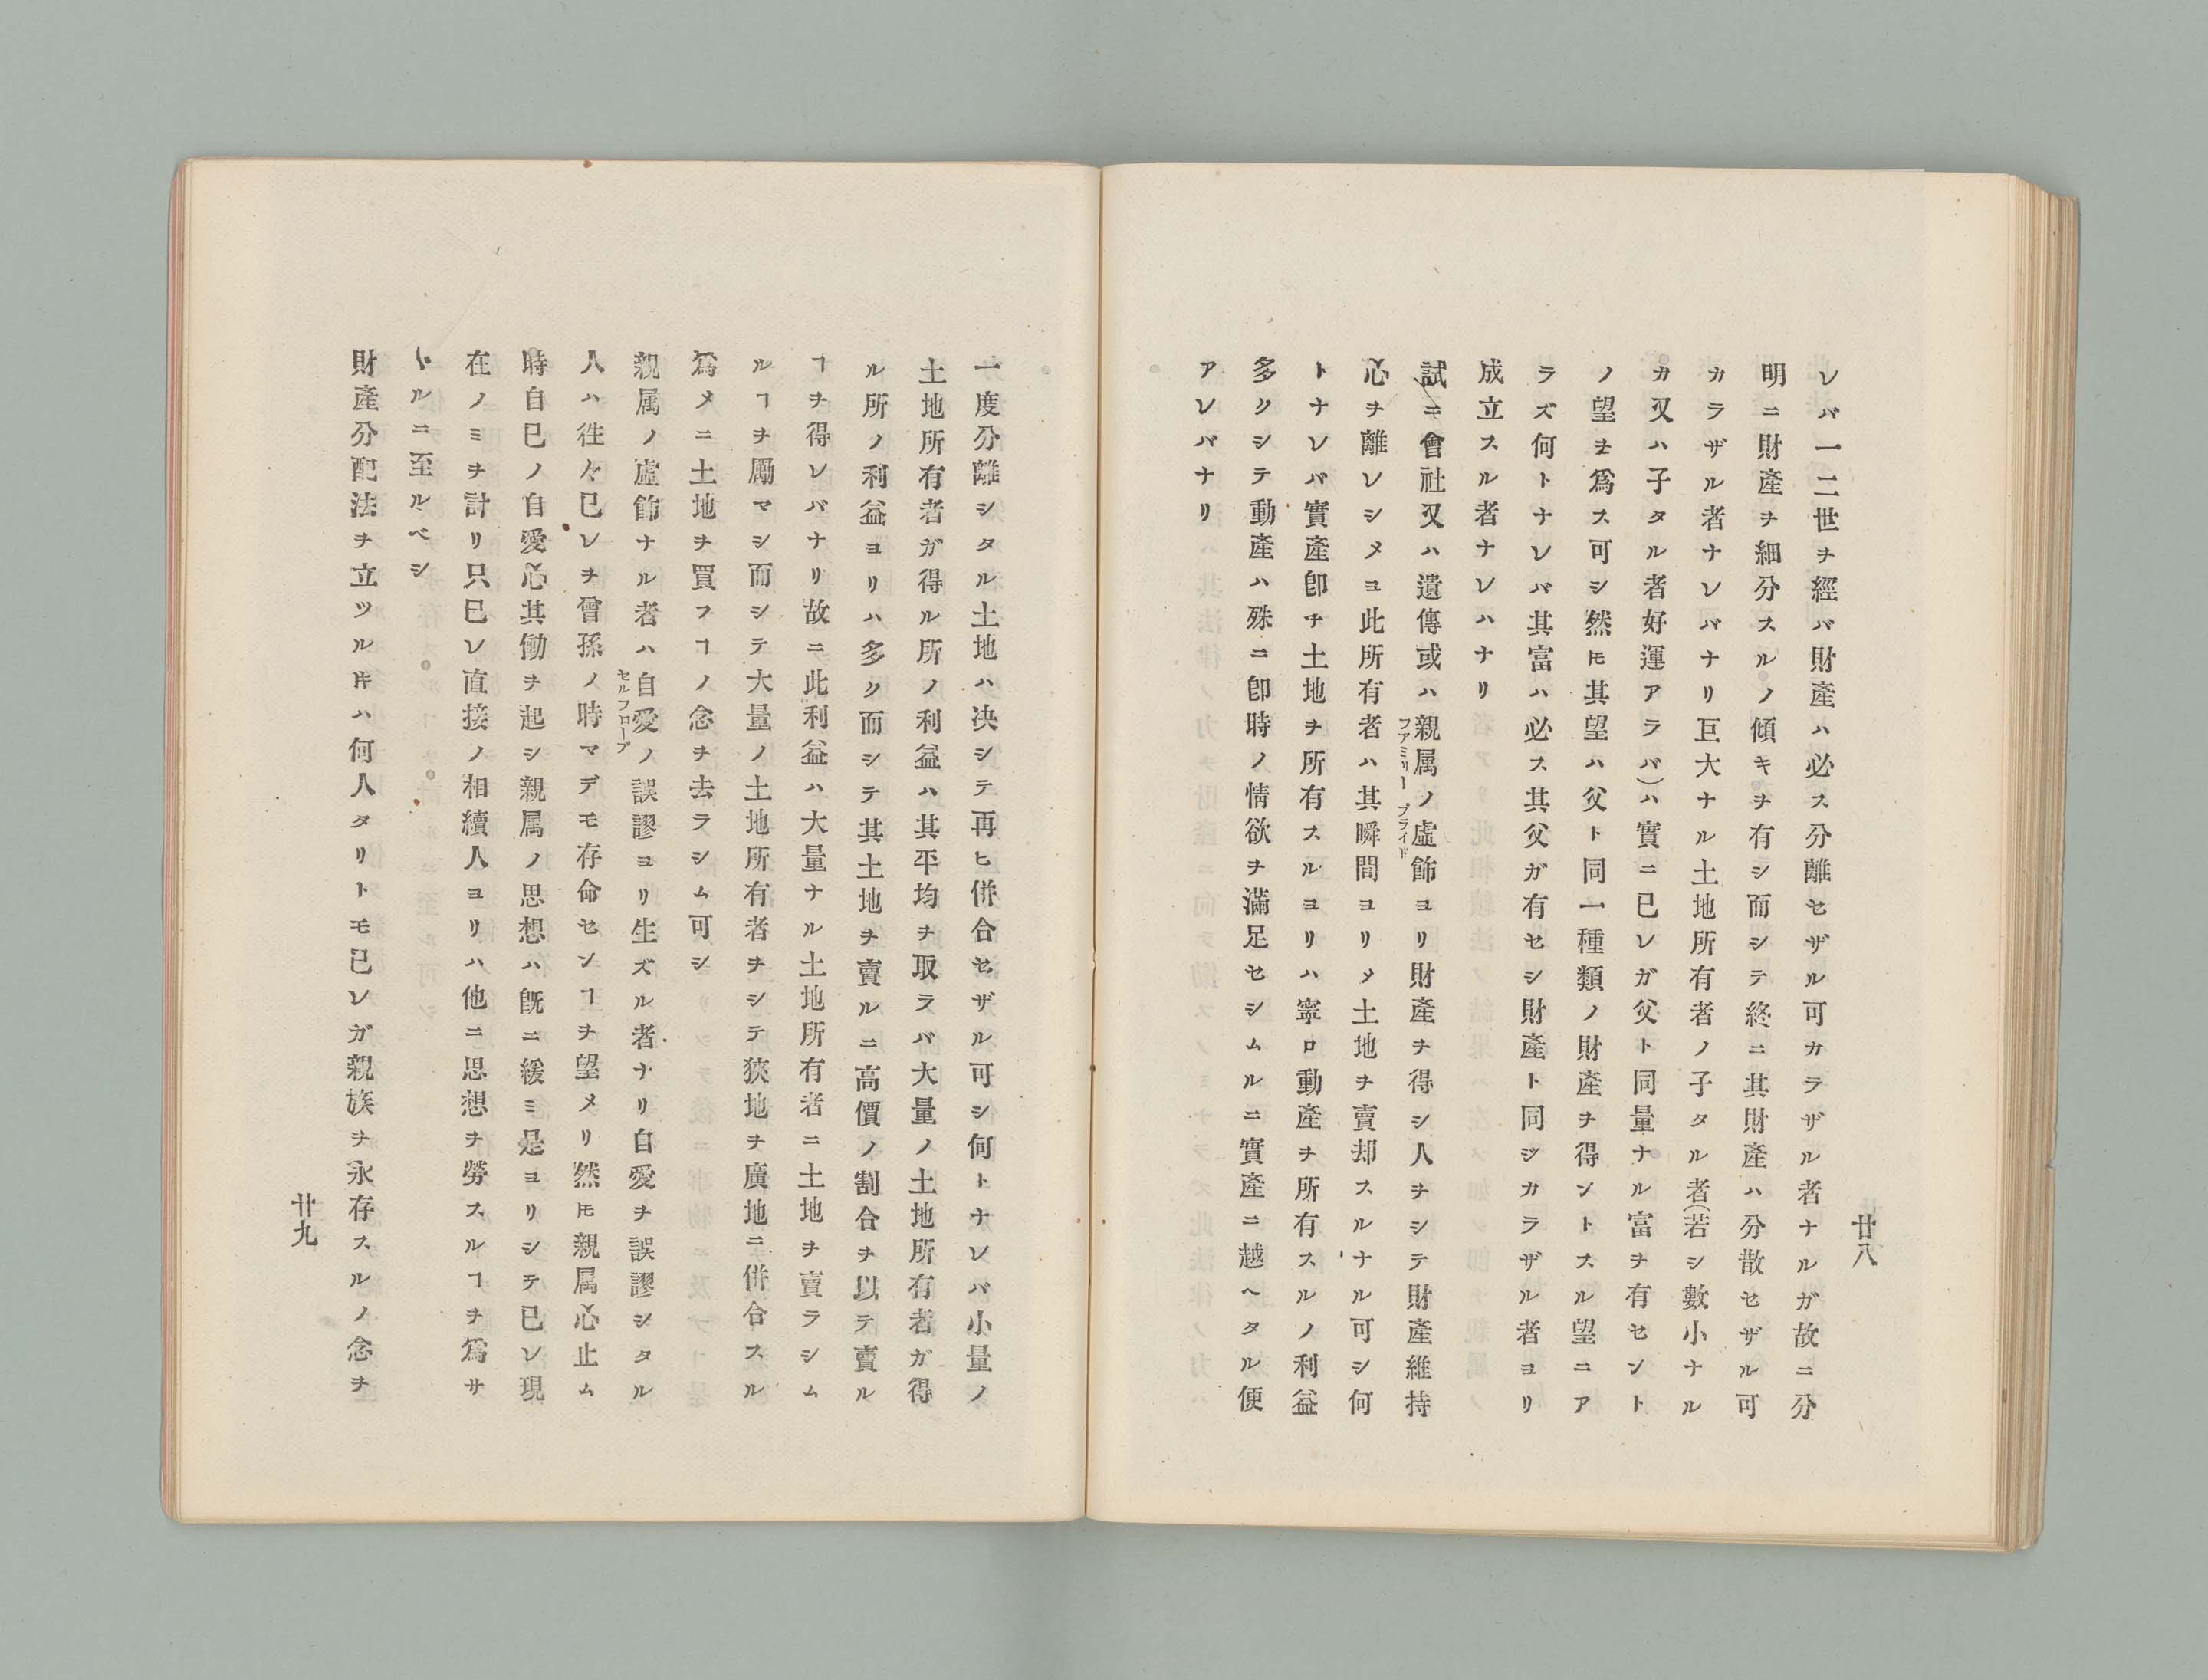 廿八
レバ一二世ヲ經バ財產ハ必ス分離セザル可カラザル者ナルガ故ニ分
明ニ財產ヲ細分スルノ傾キヲ有シ而シテ終ニ其財產ハ分散セザル可
カラザル者ナレバナリ巨大ナル土地所有者ノ子タル者(若シ數小ナル
カ又ハ子タル者好運アラバ)ハ實ニ已レガ父ト同量ナル富ヲ有セント
ノ望ヲ爲ス可シ然ㇳモ其望ハ父ト同一種類ノ財產ヲ得ントスル望ニア
ラズ何トナレバ其富ハ必ス其父ガ有セシ財產ト同ジカラザル者ヨリ
成立スル者ナレハナリ
試ニ會社又ハ遺傳或ハ親属ノ虛飾ヨリ財產ヲ得シ人ヲシテ財產維持
ファミリー プライド
心ヲ離レシメヨ此所有者ハ其瞬間ヨリメ土地ヲ賣却スルナル可シ何
トナレバ實產卽チ土地ヲ所有スルヨリハ寧ロ動產ヲ所有スルノ利益
多クシテ動產ハ殊ニ卽時ノ情欲ヲ滿足セシムルニ實產ニ越ヘタル便
アレバナリ
一度分離シタル土地ハ决シテ再ヒ併合セザル可シ何トナレバ小量ノ
土地所有者ガ得ル所ノ利益ハ其平均ヲ取ラバ大量ノ土地所有者ガ得
ル所ノ利益ヨリハ多ク而シテ其土地ヲ賣ルニ高價ノ割合ヲ以テ賣ル
ヿヲ得レバナリ故ニ此利益ハ大量ナル土地所有者ニ土地ヲ賣ラシム
ルヿヲ勵マシ而シテ大量ノ土地所有者ヲシテ狹地ヲ廣地ニ併合スル
爲メニ土地ヲ買フヿノ念ヲ去ラシム可シ
親属ノ虛飾ナル者ハ自愛ノ誤謬ヨリ生ズル者ナリ自愛ヲ誤謬シタル
セルフローブ
人ハ徃々已レヲ曾孫ノ時マデモ存命センヿヲ望メリ然ㇳモ親属心止ム
時自已ノ自愛心其働ヲ起シ親属ノ思想ハ旣ニ緩ミ是ヨリシテ已レ現
在ノミヲ計リ只已レ直接ノ相續人ヨリハ他ニ思想ヲ勞スルヿヲ爲サ
ヾルニ至ルベシ
財產分配法ヲ立ツル𪜈ハ何人タリトモ已レガ親族ヲ永存スルノ念ヲ
廿九